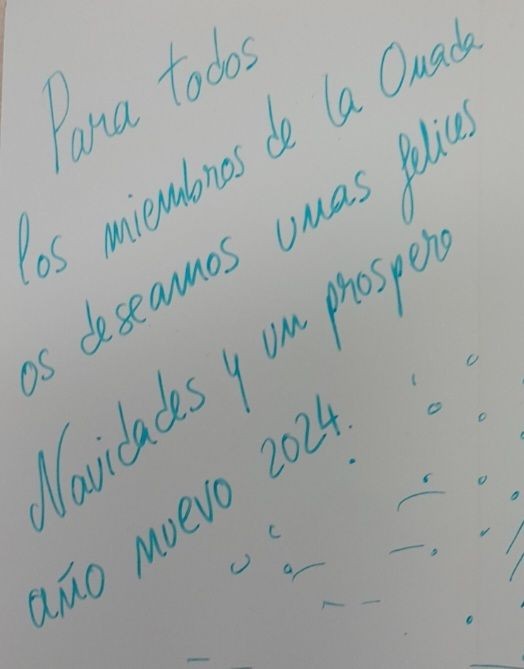 Para todos
los miembros de la Onada
os deseamos unas felices
Navidades y un prospero
año nuevo 2024.